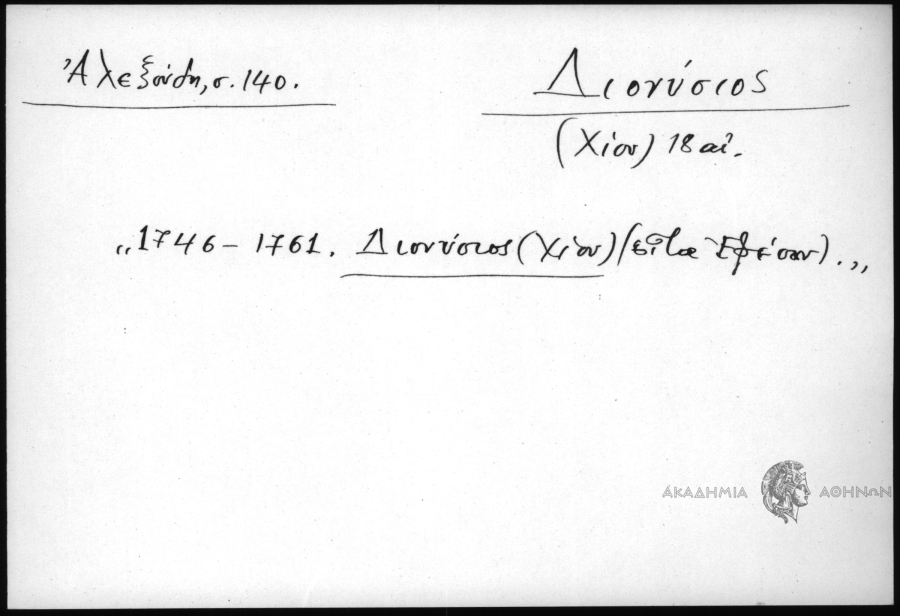 Ἀλεξούδη, σ. 140.
Διονύσιος
(Χίου) 18 αἰ.
„1746 – 1761. Διονύσιος (Χίου) (εἶτα Ἐφέσου).„
ΑΚΑΔΗΜΙΑ ΑΘΗΝΩΝ